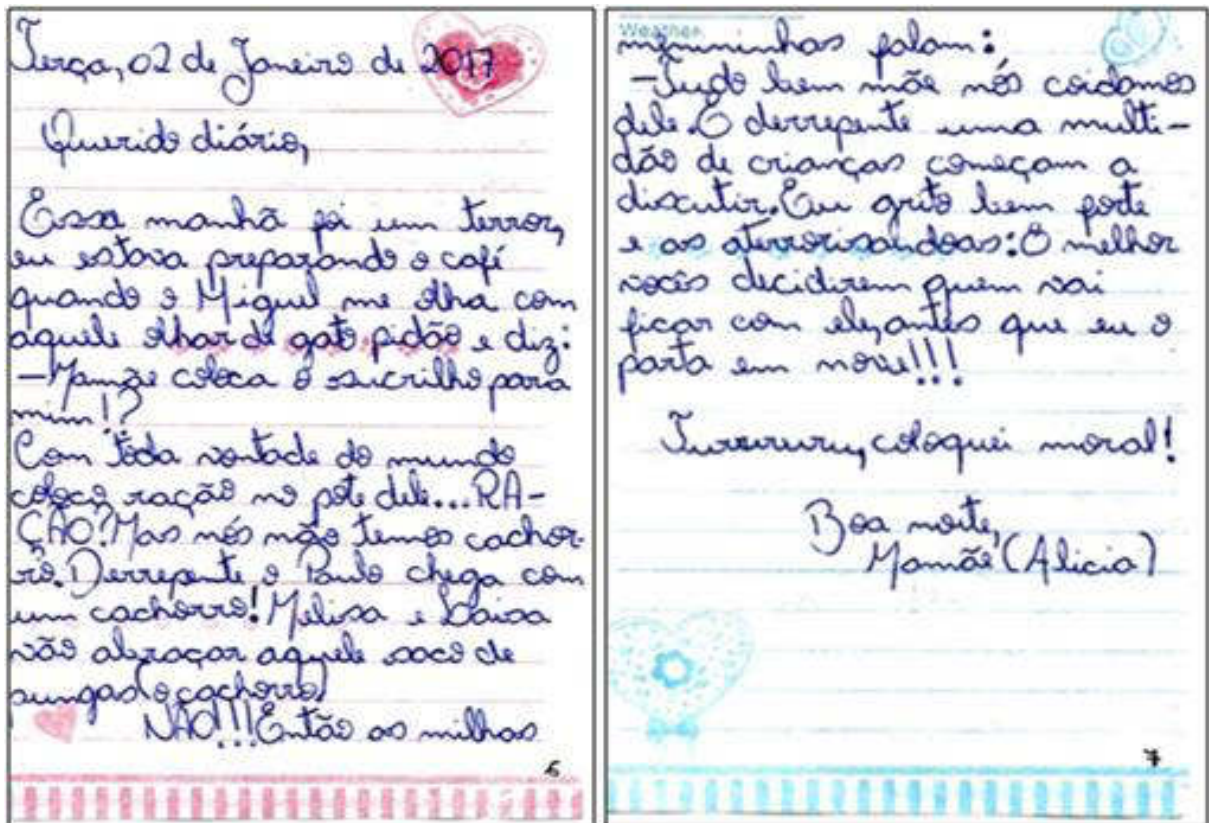 Terça, 02 de Janeiro de 2017
Querido diário,
Essa manhã foi um terror,
eu estava preparando o café
quando o Miguel me olha com
aquele olhar de gato pidão e diz:
–Mamãe coloca o sucrilho para
mim!?
Com toda vontade do mundo
coloco ração no pote dele...RA-
ÇÃO?Mas nós não temos cachor-
ro. Derrepente o Paulo chega com
um cachorro! Melisa e Laisa
vão abraçar aquele saco de
pungas(o cachorro)
NÃO!!!Então as milhas
6
Weather
menininhas falam:
–Tudo bem mãe nós coidamos
dele. E derrepente uma multi-
dão de crianças começam a
discutir. Eu grito bem forte
e as aterrorisandoas: É melhor
vocês decidirem quem vai
ficar com ele, antes que eu o
parta em nove!!!
Tururururu, coloquei moral!
Boa noite,
Mamãe (Alicia)
7